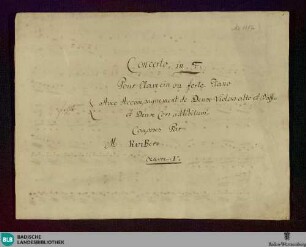 Concerto in F.
Pour Clavecin ou forte Piano
Avec Accompagnement de Deux Violons alto et Basse
et Deux Cors ad libitum
Composés Par
M
BLB
BADISCHE
LANDESBIBLIOTHEK
Baden-Württemberg